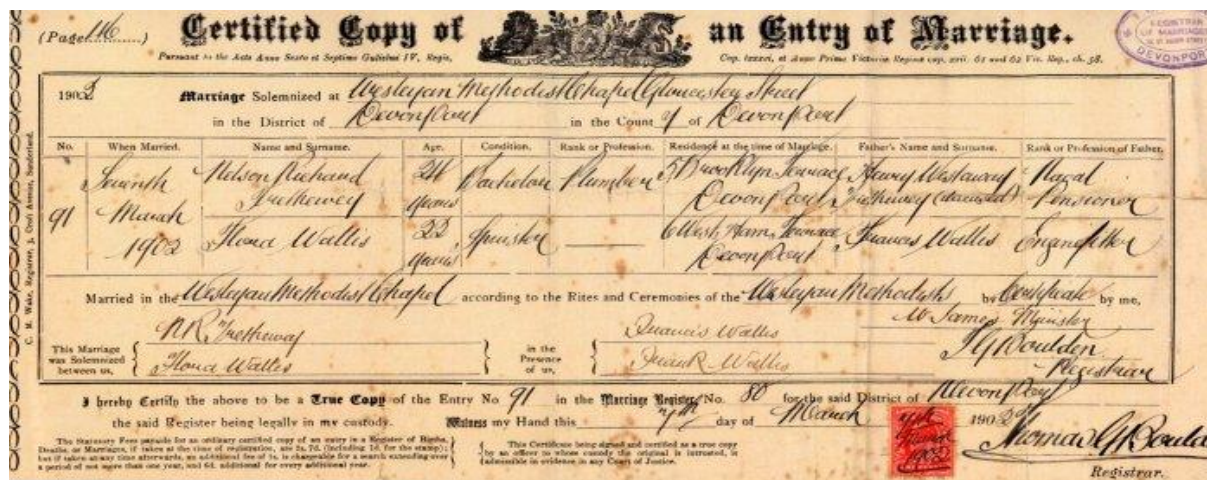 (Page 116) Certified Copy of an Entry of Marriage.
Pursuant to the Acts Anno Sexto et Septimo Gulielmi IV, Regis, Cap. lxxxvi, et Anno Primo Victoriæ Reginæ cap. xxii. 61 and 62 Vic. Reg., ch. 58.
REGISTRAR
OF MARRIAGES
DEVONPORT
1902 Marriage Solemnized at Wesleyan Methodist Chapel Gloucester Street
in the District of Devonport in the County of Devonport
No. When Married. Name and Surname. Age. Condition. Rank or Profession. Residence at the time of Marriage. Father's Name and Surname. Rank or Profession of Father.
91 Seventh March 1902
Nelson Richard Trethewey 24 years Bachelor Plumber 5 Brooklyn Terrace Devonport Harry Westaway Trethewey (deceased) Naval Pensioner
Flona Wallis 22 years Spinster 6 West Ham Terrace Devonport Francis Wallis Engine fitter
Married in the Wesleyan Methodist Chapel according to the Rites and Ceremonies of the Wesleyan Methodists by Certificate by me,
W James Minister
This Marriage was Solemnized between us, N R Trethewey Flona Wallis in the Presence of us, Francis Wallis Frank Wallis
T G Boulden
Registrar
I hereby Certify the above to be a True Copy of the Entry No 91 in the Marriage Register No. 80 for the said District of Devonport
the said Register being legally in my custody. Witness my Hand this 7th day of March 1902
The Statutory Fees payable for an ordinary certified copy of an entry in a Register of Births, Deaths, or Marriages, if taken at the time of registration, are 2s. 7d. (including 1d. for the stamp); but if taken at any time afterwards, an additional fee of 1s. is chargeable for a search extending over a period of not more than one year, and 6d. additional for every additional year.
This Certificate being signed and certified as a true copy by an officer to whose custody the original is intrusted, is admissible in evidence in any Court of Justice.
7th March 1902
Thomas G Bould
Registrar.
C. M. Wake, Registrar, 3, Croft Avenue, Sunderland.